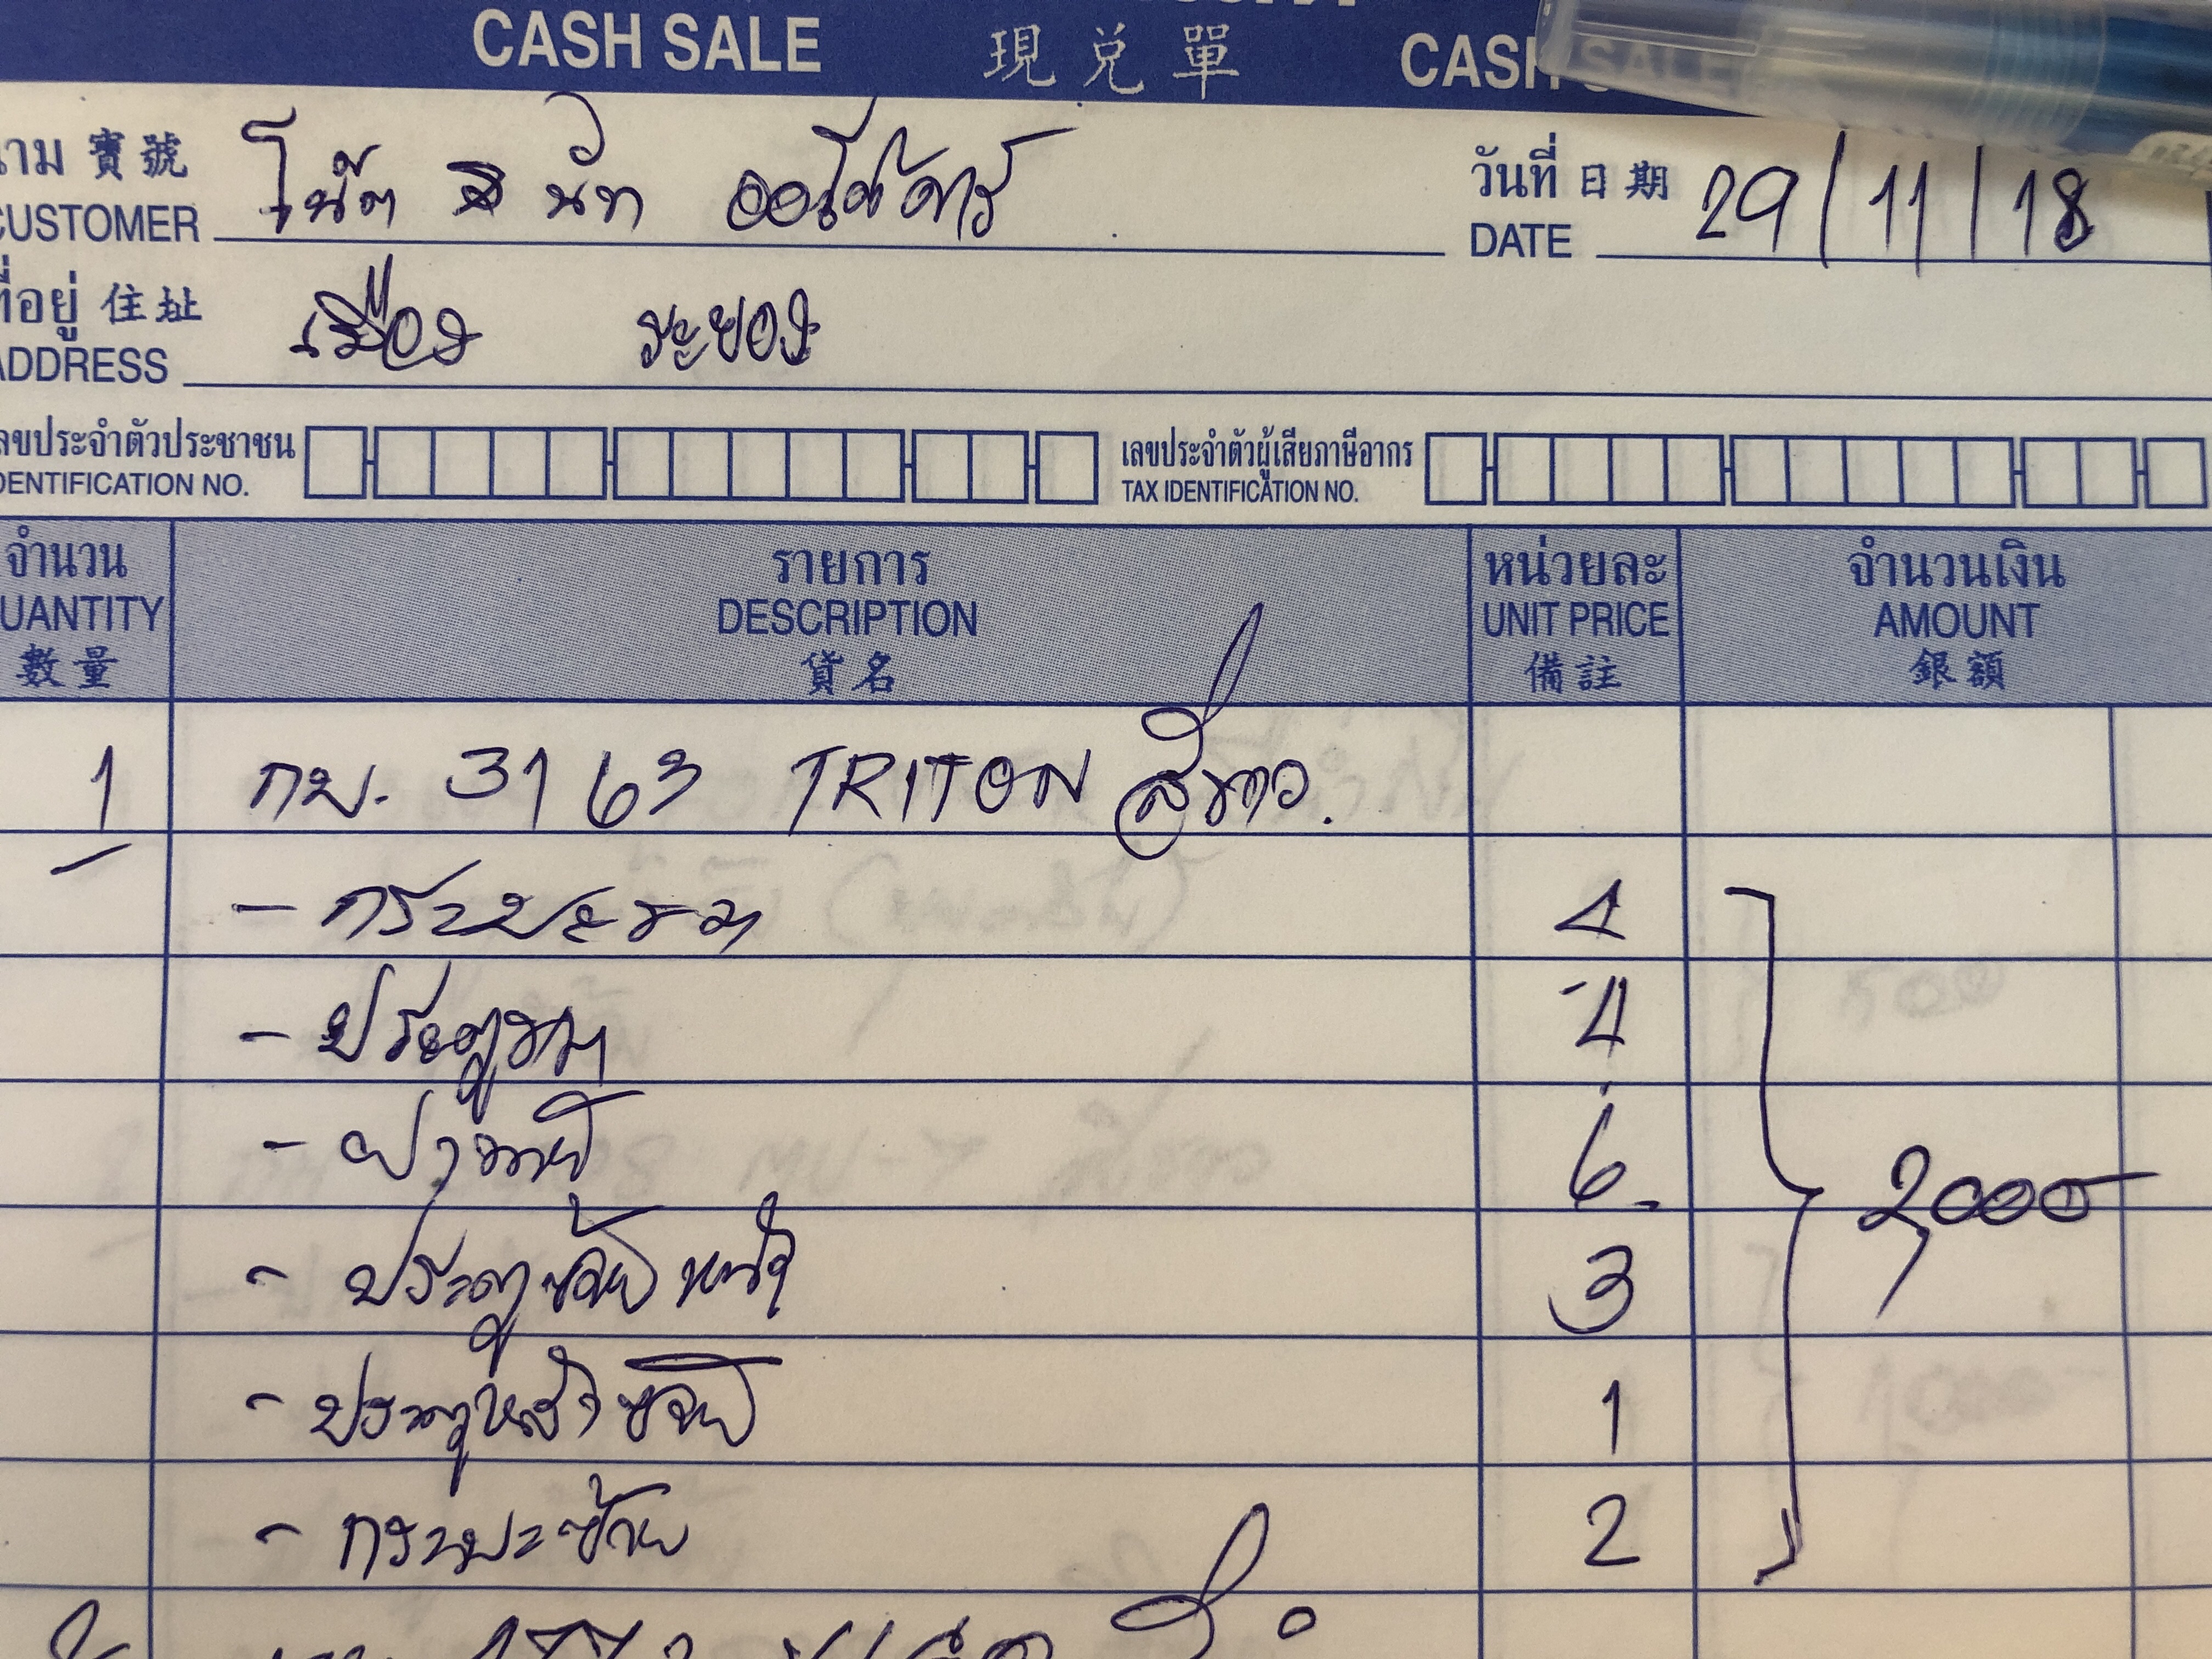 CASH SALE 現兑單 CASH SALE
นาม 寶號 โน๊ต นัท ออโต้คาร์ วันที่ 日期 29/11/18
CUSTOMER DATE
ที่อยู่ 住址 เมือง ระยอง
ADDRESS
เลขประจำตัวประชาชน เลขประจำตัวผู้เสียภาษีอากร
IDENTIFICATION NO. TAX IDENTIFICATION NO.
จำนวน รายการ หน่วยละ จำนวนเงิน
QUANTITY DESCRIPTION UNIT PRICE AMOUNT
數量 貨名 備註 銀額
1 กบ. 3163 TRITON สีขาว.
- กระบะขวา 4
- ประตูขวา 4
- ฝาท้าย 6
- ประตูซ้ายหน้า 3
- ประตูหลังซ้าย 1
- กระบะซ้าย 2
2000